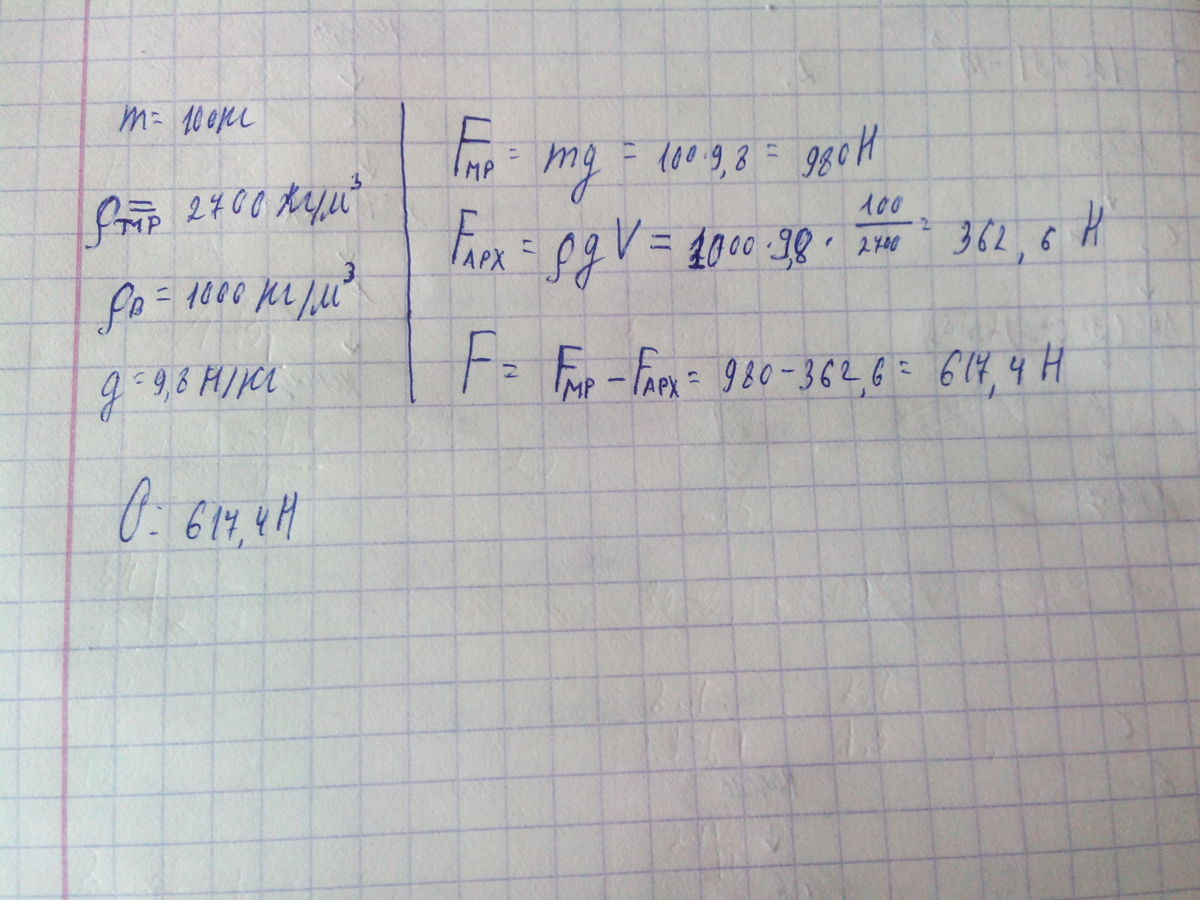 m = 100кг
ρтмр = 2700 кг/м³
ρв = 1000 кг/м³
g = 9,8 Н/кг
Fмр = mg = 100·9,8 = 980 Н
Fарх = ρgV = 1000·9,8·100/2700 = 362,6 Н
F = Fмр − Fарх = 980 − 362,6 = 617,4 Н
О: 617,4 Н